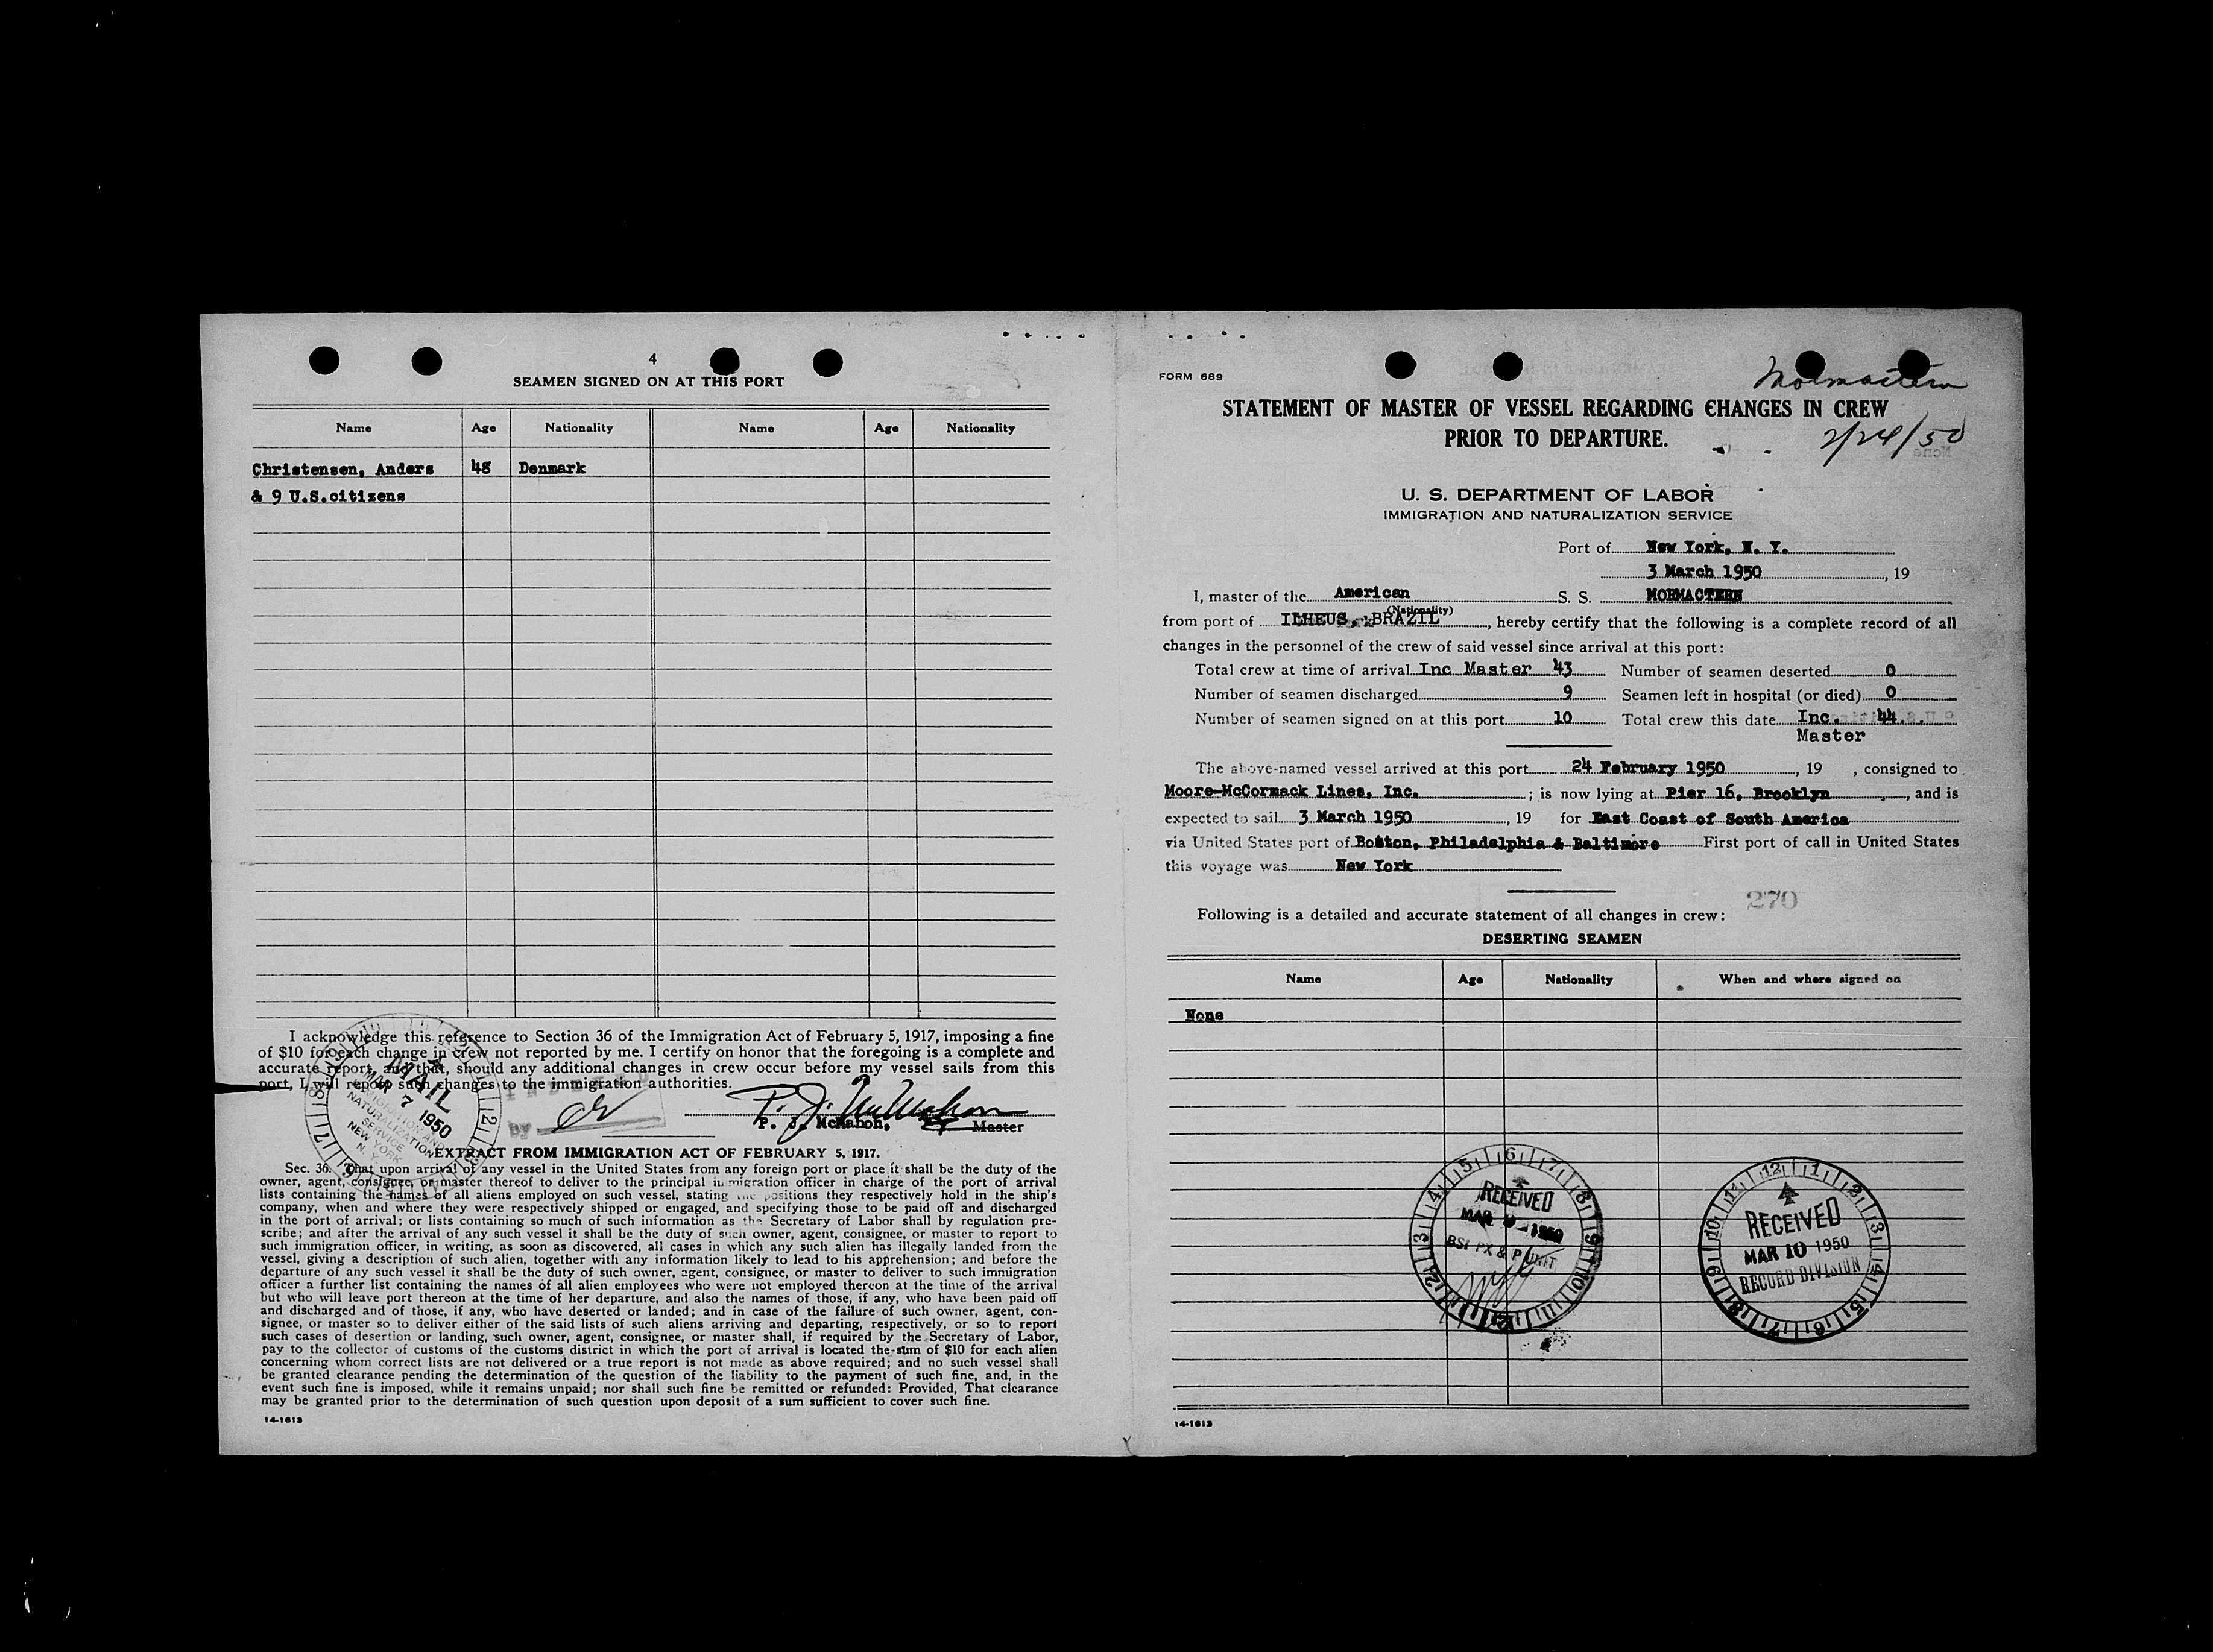 4
SEAMEN SIGNED ON AT THIS PORT
Name Age Nationality Name Age Nationality
Christensen, Anders 48 Denmark
& 9 U.S.citizens
I acknowledge this reference to Section 36 of the Immigration Act of February 5, 1917, imposing a fine
of $10 for each change in crew not reported by me. I certify on honor that the foregoing is a complete and
accurate report, and that, should any additional changes in crew occur before my vessel sails from this
port, I will report such changes to the immigration authorities.
MAIL
MAR 7 1950
IMMIGRATION AND
NATURALIZATION
SERVICE
NEW YORK
N. Y.
by
P. J. McMahon
P. J. McMahon, Master
EXTRACT FROM IMMIGRATION ACT OF FEBRUARY 5, 1917.
Sec. 36. That upon arrival of any vessel in the United States from any foreign port or place it shall be the duty of the
owner, agent, consignee, or master thereof to deliver to the principal immigration officer in charge of the port of arrival
lists containing the names of all aliens employed on such vessel, stating the positions they respectively hold in the ship's
company, when and where they were respectively shipped or engaged, and specifying those to be paid off and discharged
in the port of arrival; or lists containing so much of such information as the Secretary of Labor shall by regulation pre-
scribe; and after the arrival of any such vessel it shall be the duty of such owner, agent, consignee, or master to report to
such immigration officer, in writing, as soon as discovered, all cases in which any such alien has illegally landed from the
vessel, giving a description of such alien, together with any information likely to lead to his apprehension; and before the
departure of any such vessel it shall be the duty of such owner, agent, consignee, or master to deliver to such immigration
officer a further list containing the names of all alien employees who were not employed thereon at the time of the arrival
but who will leave port thereon at the time of her departure, and also the names of those, if any, who have been paid off
and discharged and of those, if any, who have deserted or landed; and in case of the failure of such owner, agent, con-
signee, or master so to deliver either of the said lists of such aliens arriving and departing, respectively, or so to report
such cases of desertion or landing, such owner, agent, consignee, or master shall, if required by the Secretary of Labor,
pay to the collector of customs of the customs district in which the port of arrival is located the sum of $10 for each alien
concerning whom correct lists are not delivered or a true report is not made as above required; and no such vessel shall
be granted clearance pending the determination of the question of the liability to the payment of such fine, and, in the
event such fine is imposed, while it remains unpaid; nor shall such fine be remitted or refunded: Provided, That clearance
may be granted prior to the determination of such question upon deposit of a sum sufficient to cover such fine.
14-1613
FORM 689
Mormactern
2/24/50
STATEMENT OF MASTER OF VESSEL REGARDING CHANGES IN CREW
PRIOR TO DEPARTURE.
U. S. DEPARTMENT OF LABOR
IMMIGRATION AND NATURALIZATION SERVICE
Port of New York, N. Y.
3 March 1950, 19
I, master of the American S. S. MORMACTERN
(Nationality)
from port of ILHEUS, BRAZIL, hereby certify that the following is a complete record of all
changes in the personnel of the crew of said vessel since arrival at this port:
Total crew at time of arrival Inc Master 43 Number of seamen deserted 0
Number of seamen discharged 9 Seamen left in hospital (or died) 0
Number of seamen signed on at this port 10 Total crew this date Inc. 44
Master
The above-named vessel arrived at this port 24 February 1950, 19 , consigned to
Moore-McCormack Lines, Inc. ; is now lying at Pier 16, Brooklyn, and is
expected to sail 3 March 1950, 19 for East Coast of South America
via United States port of Boston, Philadelphia & Baltimore First port of call in United States
this voyage was New York
270
Following is a detailed and accurate statement of all changes in crew:
DESERTING SEAMEN
Name Age Nationality When and where signed on
None
RECEIVED
MAR 1950
BSI PX & P UNIT
RECEIVED
MAR 10 1950
RECORD DIVISION
14-1613